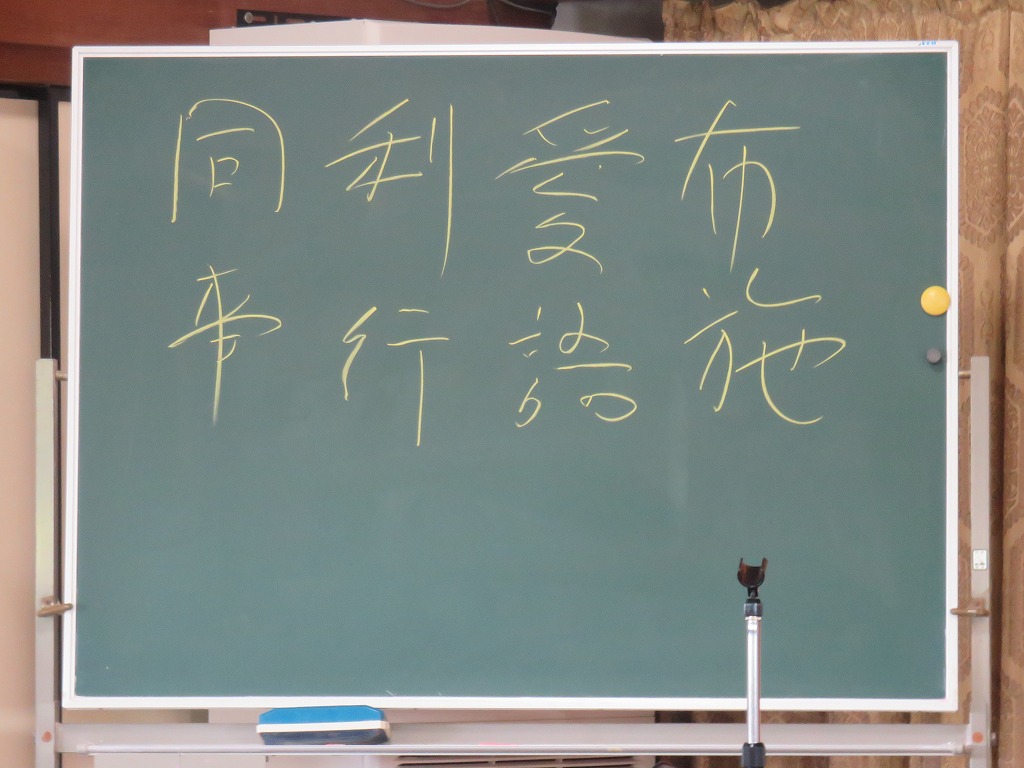 布施
愛語
利行
同事